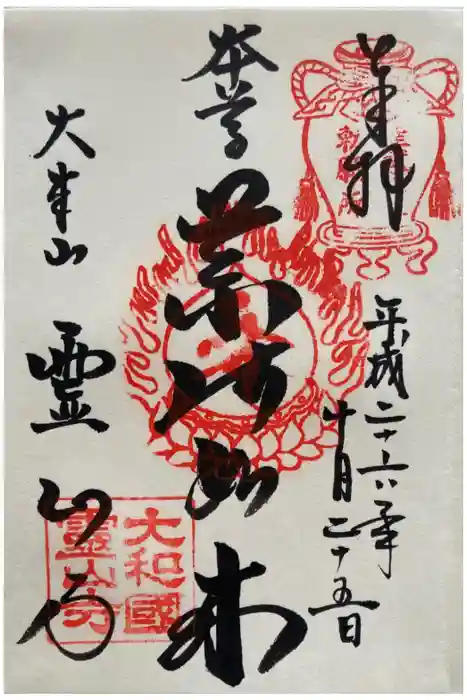 奉拝
平成二十六年
十月二十五日
本尊
薬師如来
大本山
霊山寺
大和國
靈山寺